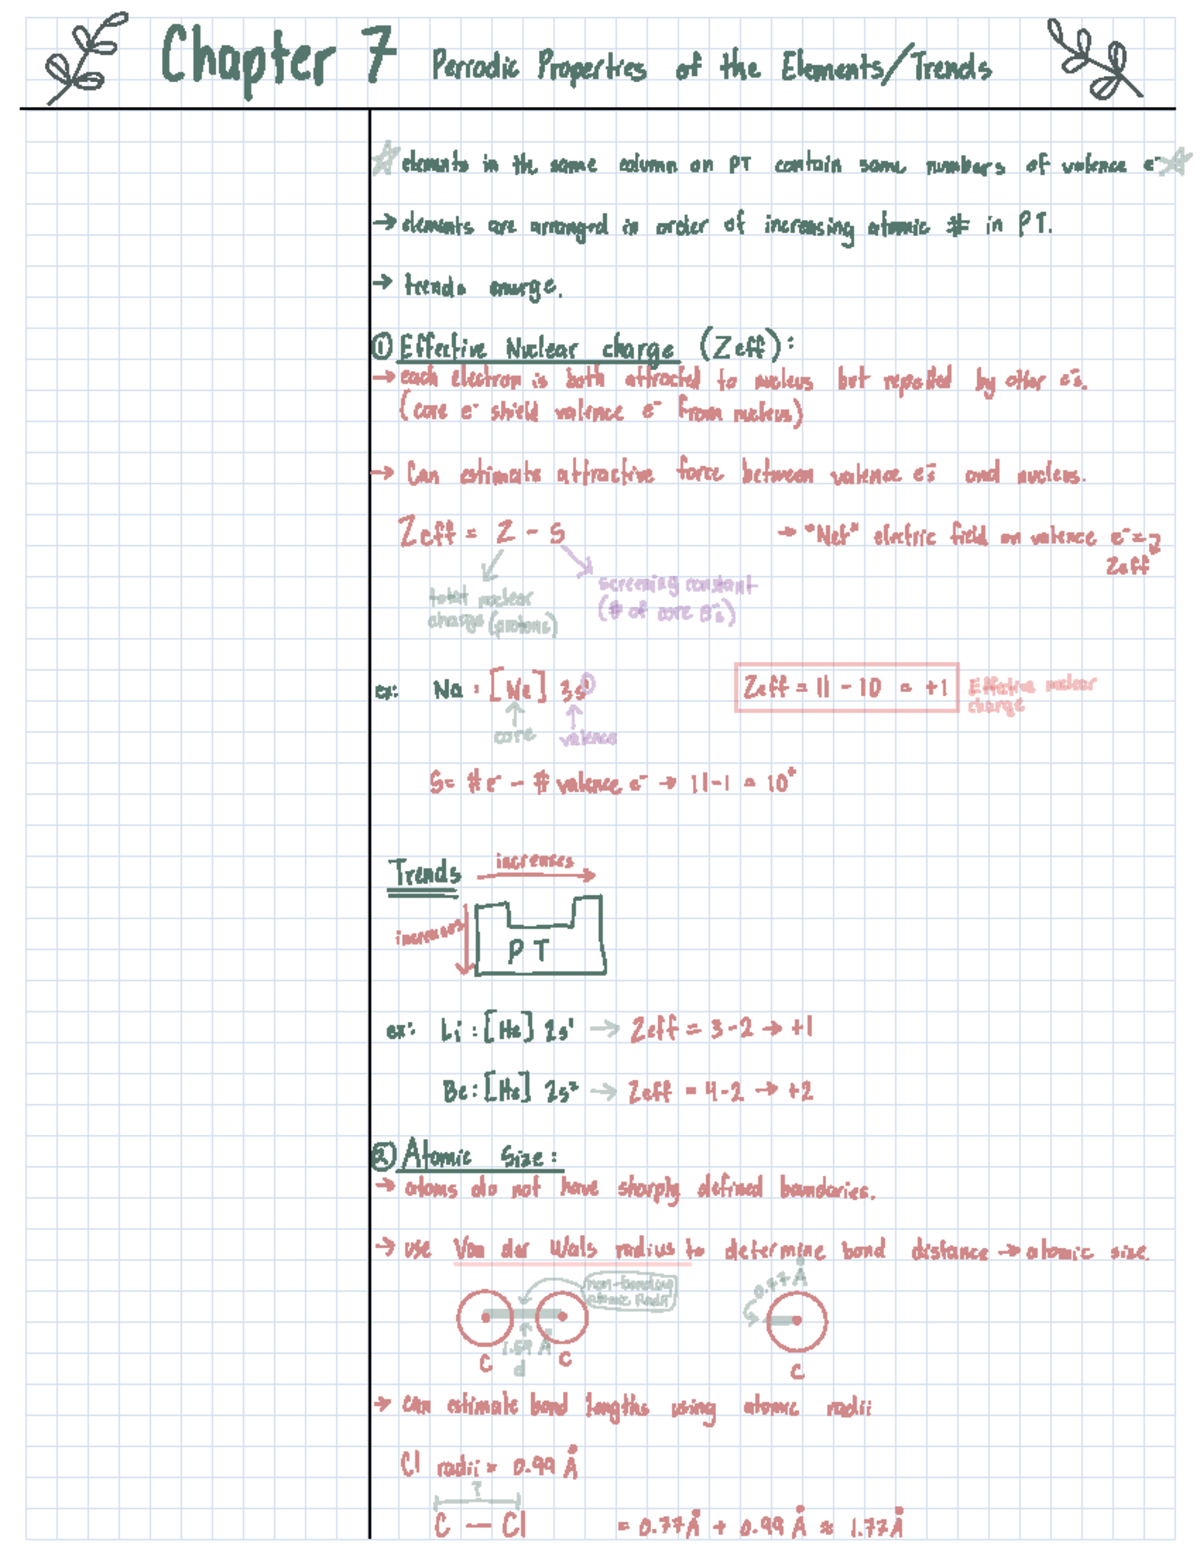 Chapter 7 Periodic Properties of the Elements/Trends
elements in the same column on PT contain same numbers of valence e⁻
→ elements are arranged in order of increasing atomic # in PT.
→ trends emerge.
① Effective Nuclear charge (Zeff):
→ each electron is both attracted to nucleus but repelled by other e⁻s.
(core e⁻ shield valence e⁻ from nucleus)
→ Can estimate attractive force between valence e⁻s and nucleus.
Zeff = Z - S
→ "Net" electric field on valence e⁻ =
Zeff
total nuclear
charge (protons)
screening constant
(# of core e⁻s)
ex: Na : [Ne] 3s¹
Zeff = 11 - 10 = +1
Effective nuclear
charge
core
valence
S = # e⁻ - # valence e⁻ → 11-1 = 10⁺
Trends
increases
increases
PT
ex: Li : [He] 2s¹ → Zeff = 3-2 → +1
Be : [He] 2s² → Zeff = 4-2 → +2
② Atomic Size:
→ atoms do not have sharply defined boundaries.
→ use Van der Wals radius to determine bond distance → atomic size.
non-bonding
atomic Radii
0.77 Å
1.54 Å
d
C C
C
→ can estimate bond lengths using atomic radii
Cl radii = 0.99 Å
?
C — Cl = 0.77Å + 0.99 Å ≈ 1.77Å